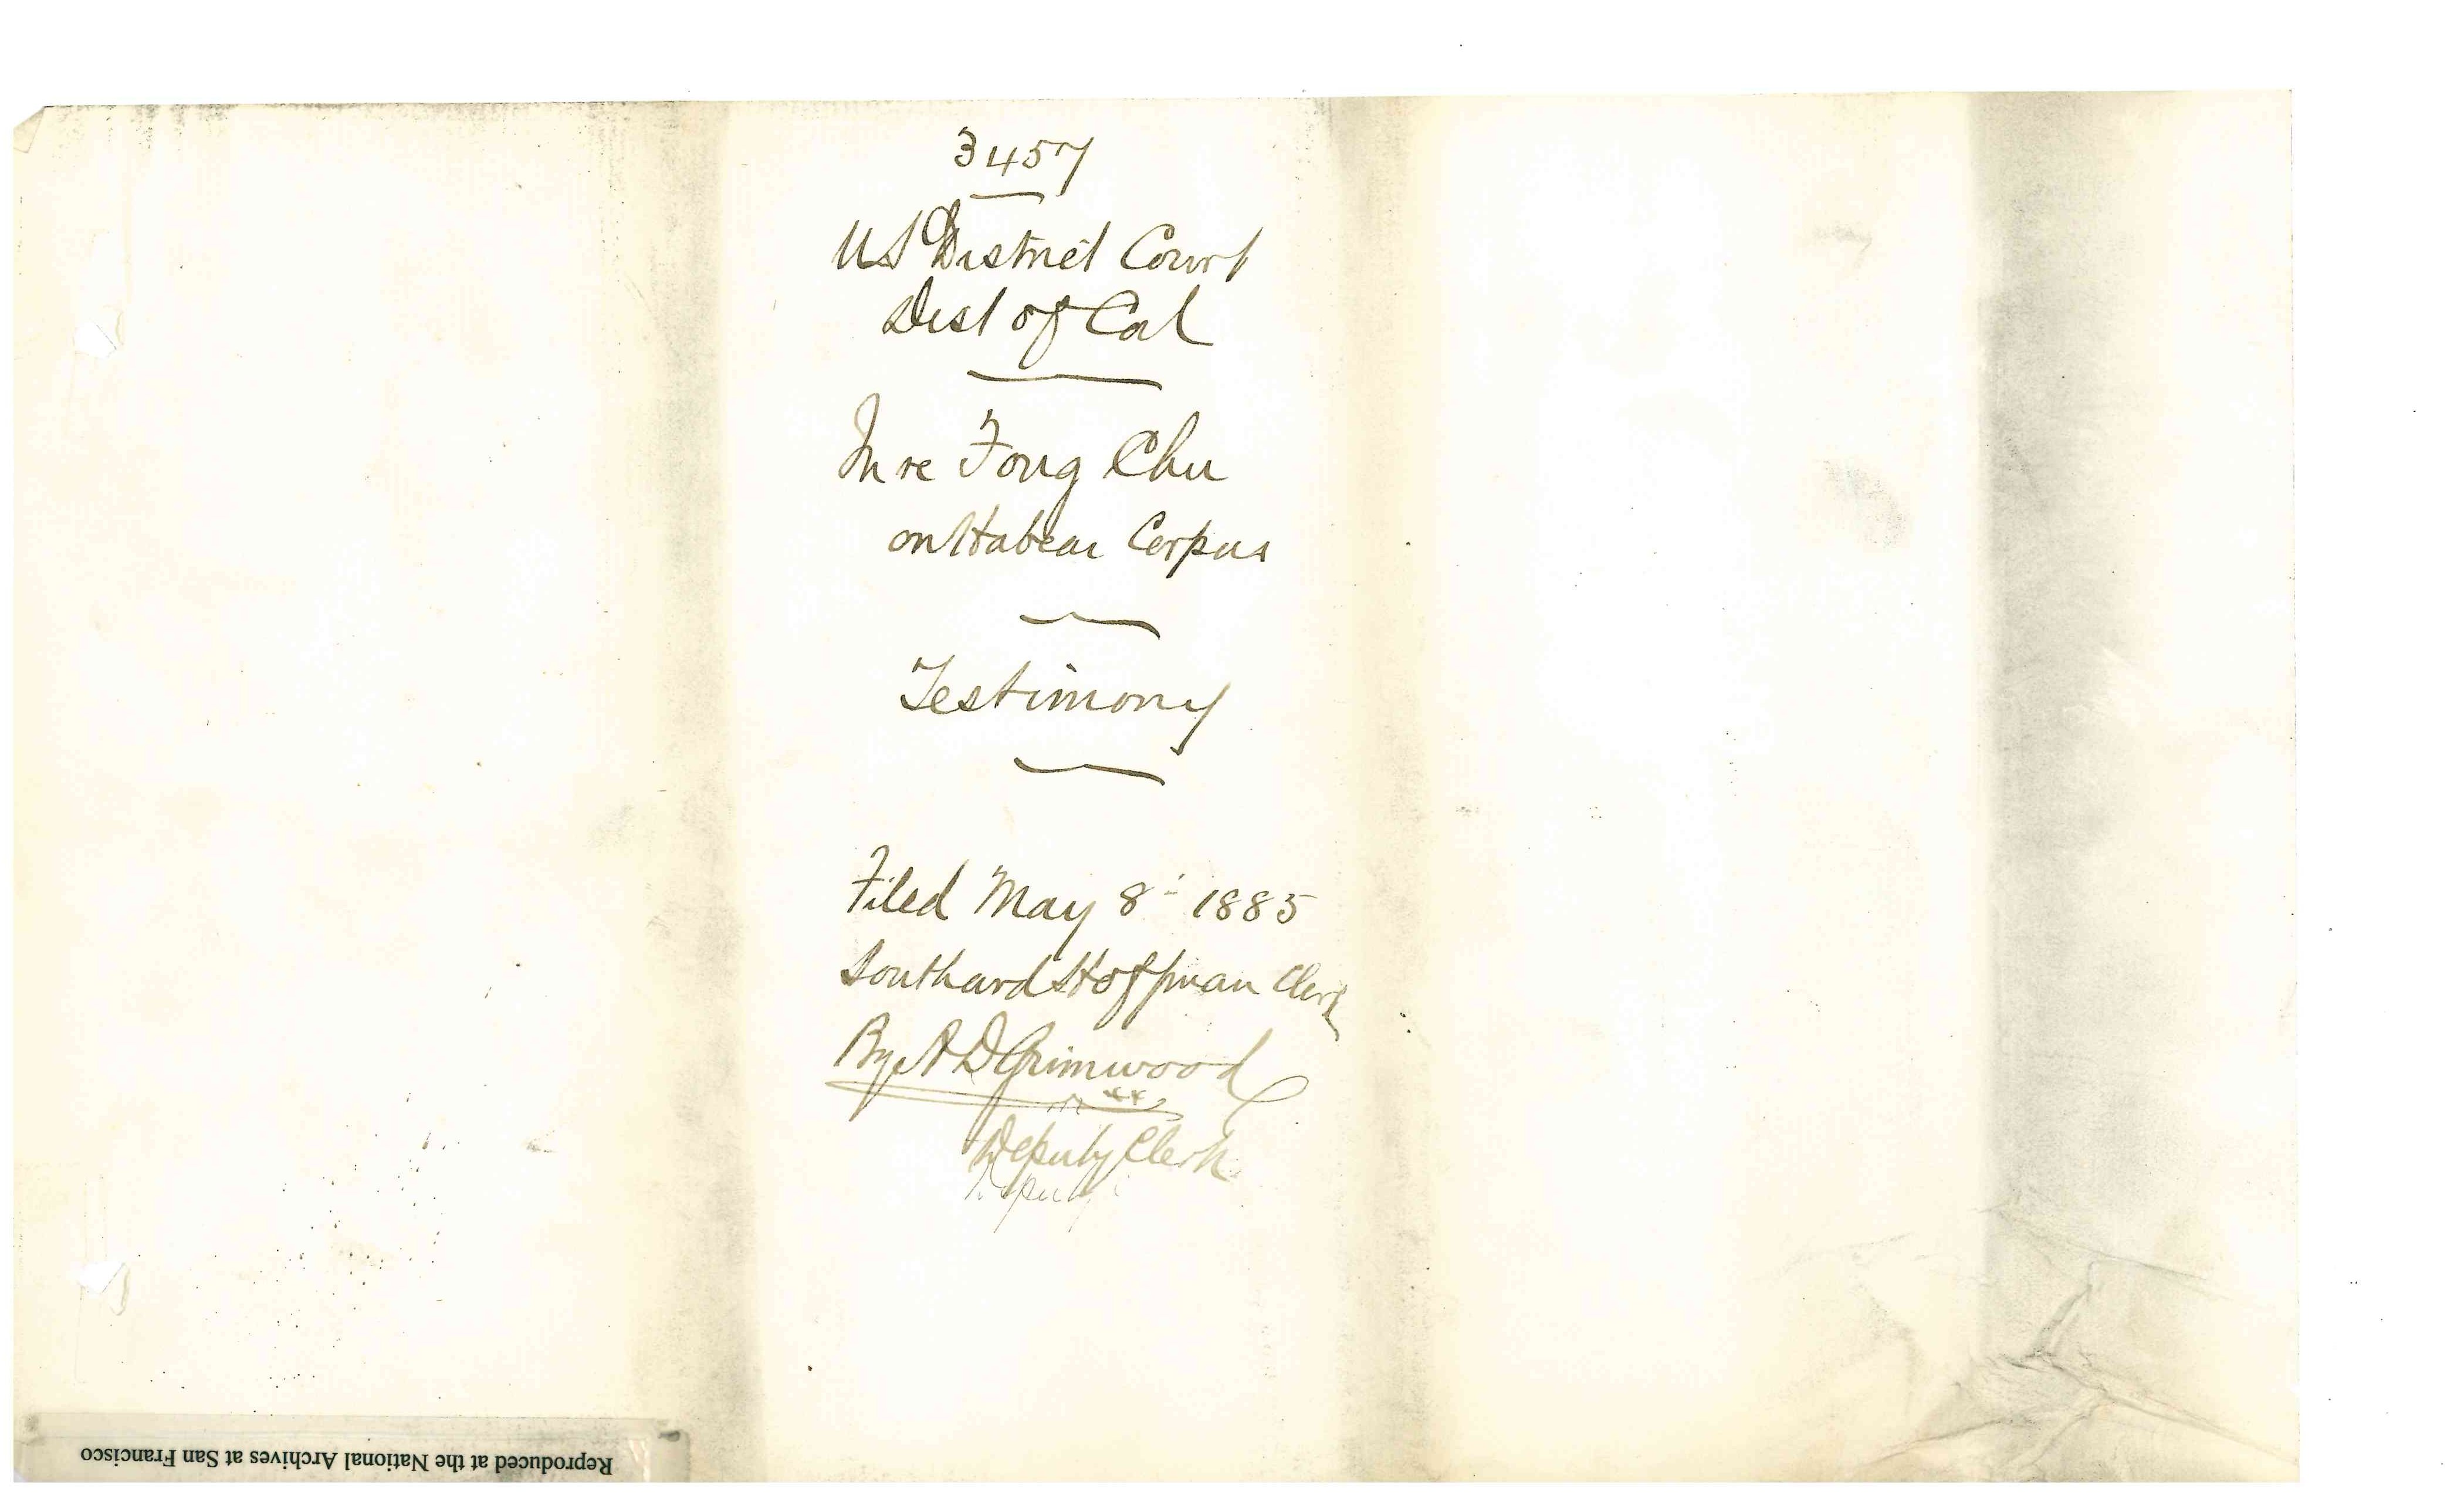 3457
US District Court
Dist of Cal
In re Fong Chu
on Habeas Corpus
Testimony
Filed May 8 1885
Southard Hoffman Clerk
By A D Grimwood
Deputy Clerk
Deputy
Reproduced at the National Archives at San Francisco